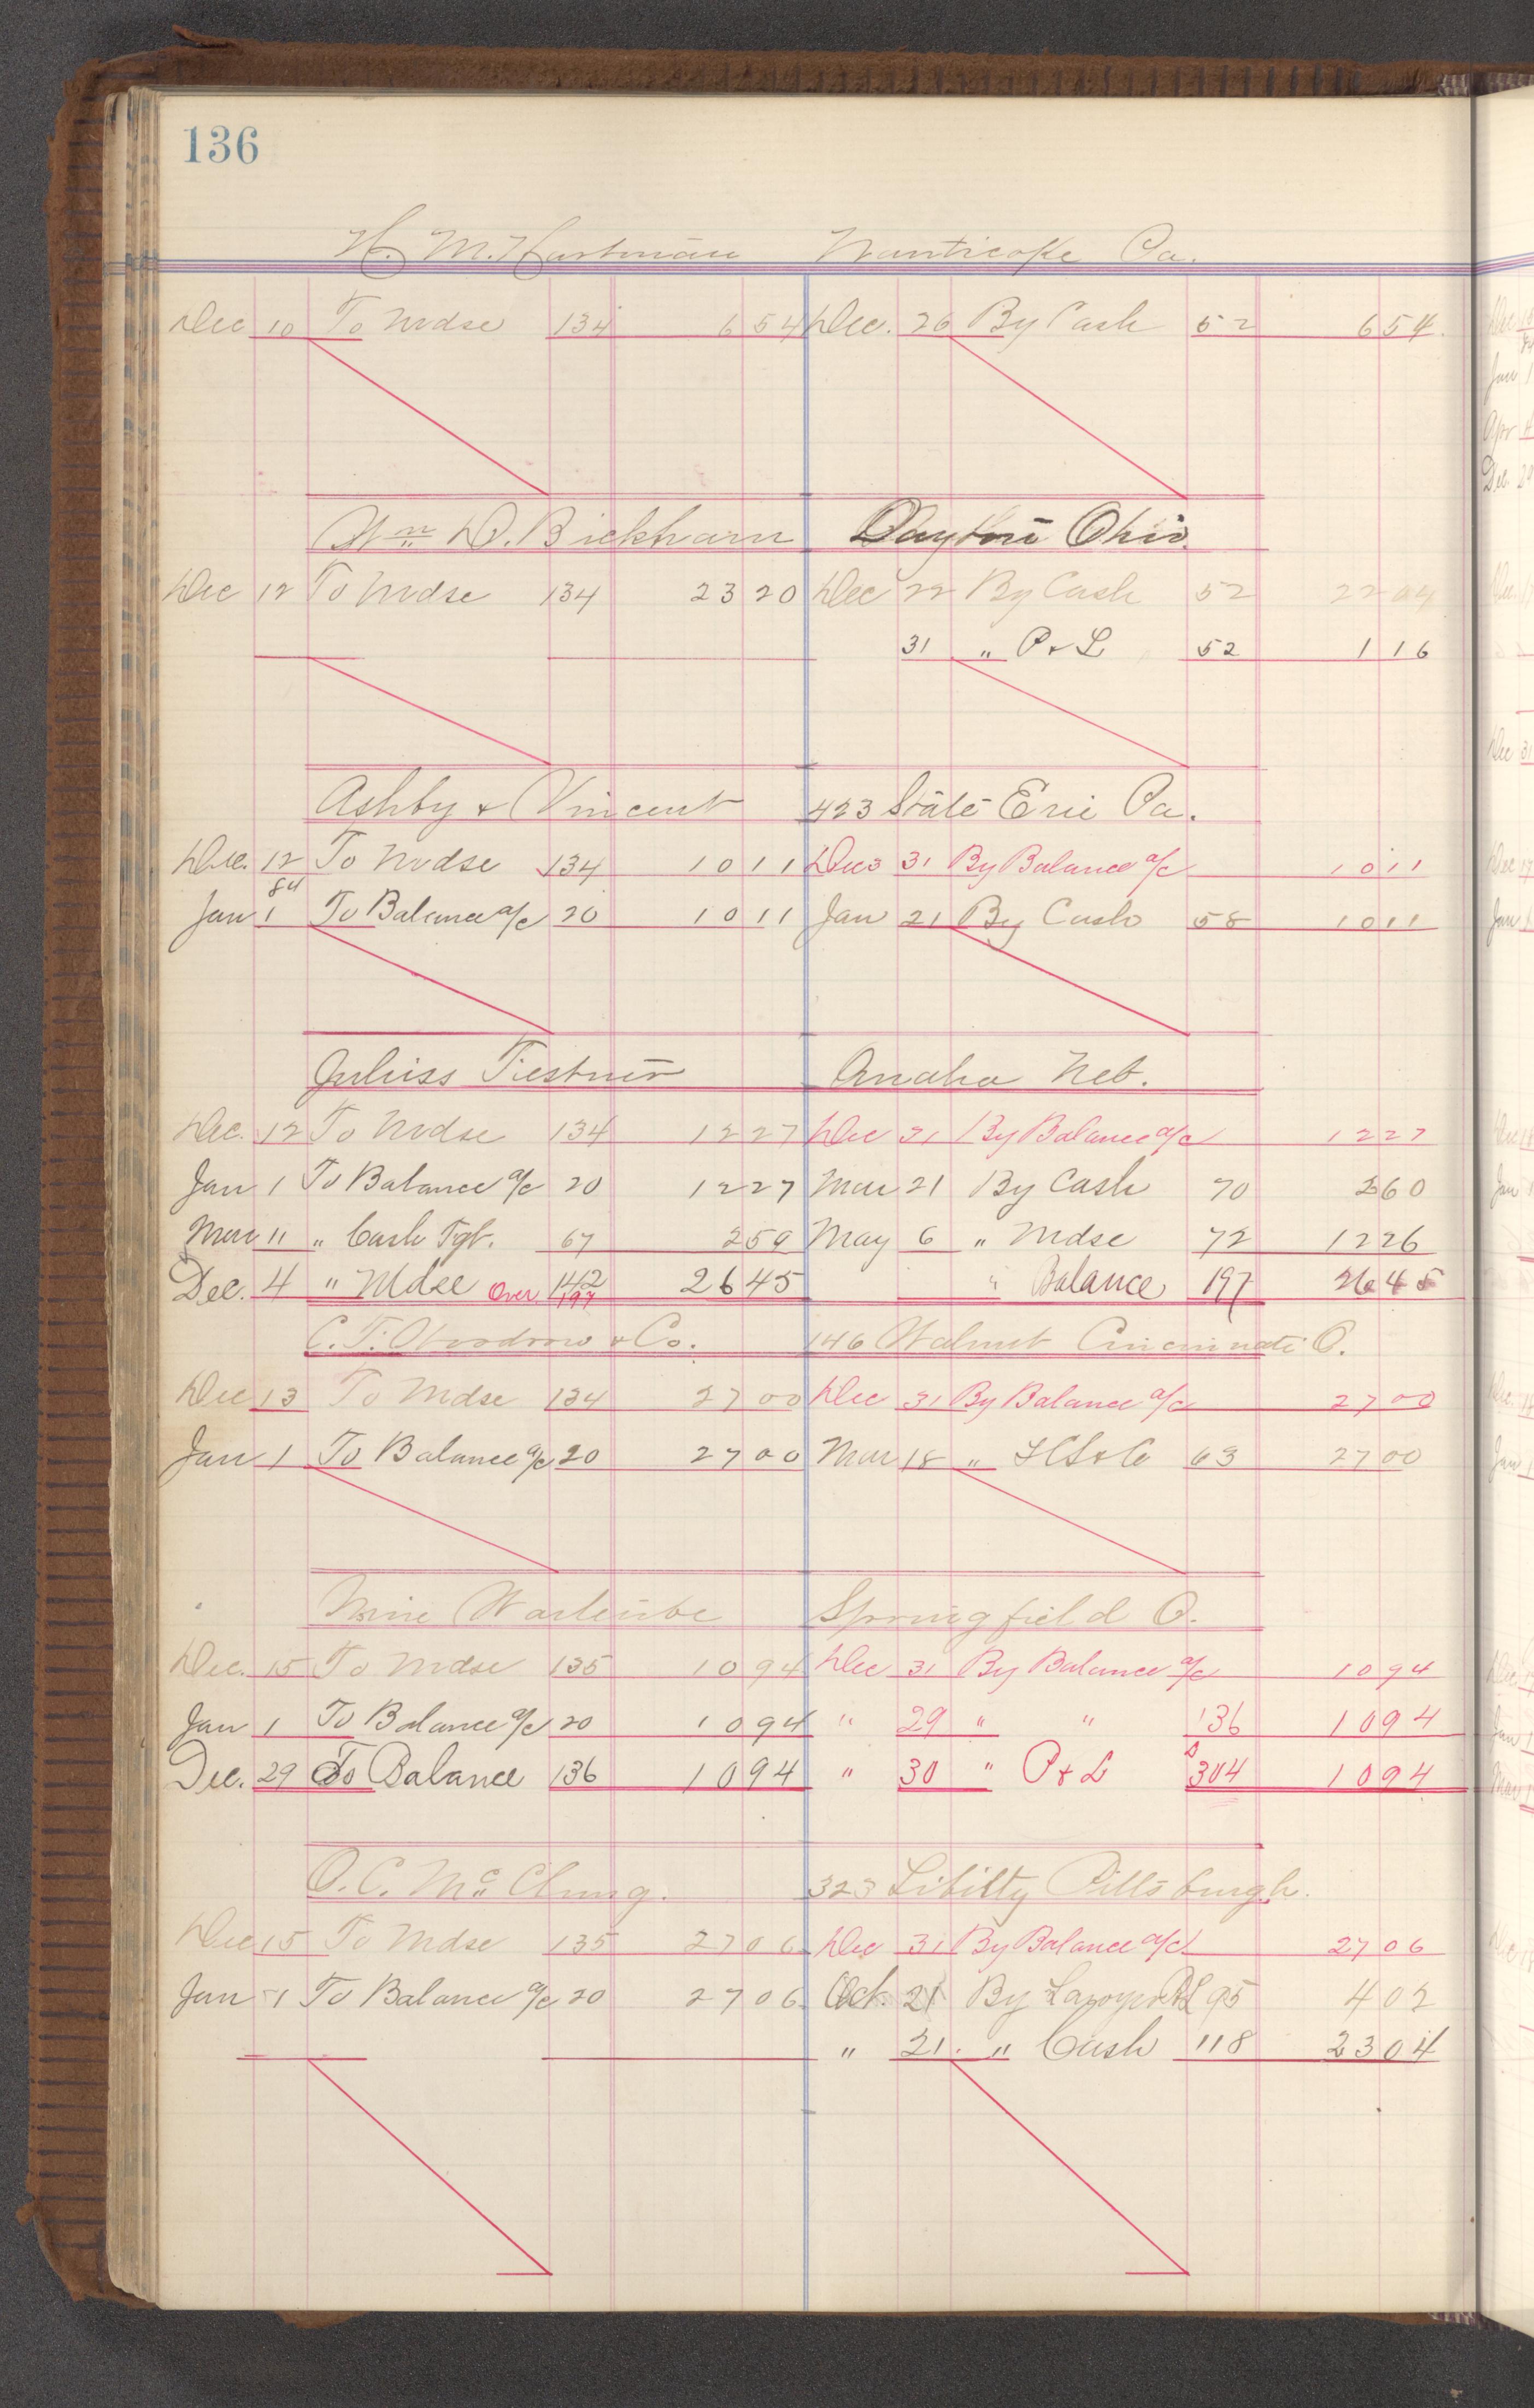 136
H. M. Hartman Nanticoke Pa.
Dec 10 To Mdse 134 6 54 Dec. 26 By Cash 52 6 54
Wm D. Bickham Dayton Ohio.
Dec 12 To Mdse 134 23 20 Dec 22 By Cash 52 22 04
31 " P & L 52 1 16
Ashby & Vincent 423 State Erie Pa.
Dec. 12 To Mdse 134 10 11 Dec 31 By Balance a/c 10 11
84
Jan 1 To Balance a/c 20 10 11 Jan 21 By Cash 58 10 11
Juliss Omaha Neb.
Dec. 12 To Mdse 134 12 27 Dec 31 By Balance a/c 12 27
Jan 1 To Balance a/c 20 12 27 Mar 21 By Cash 70 2 60
Mar 11 " Cash Fgt. 67 2 59 May 6 " Mdse 72 12 26
Dec. 4 " Mdse Over 142 197 26 45 " Balance 197 26 45
C. T. Woodrow & Co. 146 Walnut Cincinnati O.
Dec 13 To Mdse 134 27 00 Dec 31 By Balance a/c 27 00
Jan 1 To Balance a/c 20 27 00 Mar 18 " 63 27 00
Springfield O.
Dec. 15 To Mdse 135 10 94 Dec 31 By Balance a/c 10 94
Jan 1 To Balance a/c 20 10 94 " 29 " " 136 10 94
Dec. 29 To Balance 136 10 94 " 30 " P & L 304 10 94
O. C. Mc Clung. 323 Libilty Pittsburgh.
Dec 15 To Mdse 135 27 06 Dec 31 By Balance a/c 27 06
Jan 1 To Balance a/c 20 27 06 Oct. 21 By 95 4 02
" 21. " Cash 118 23 04